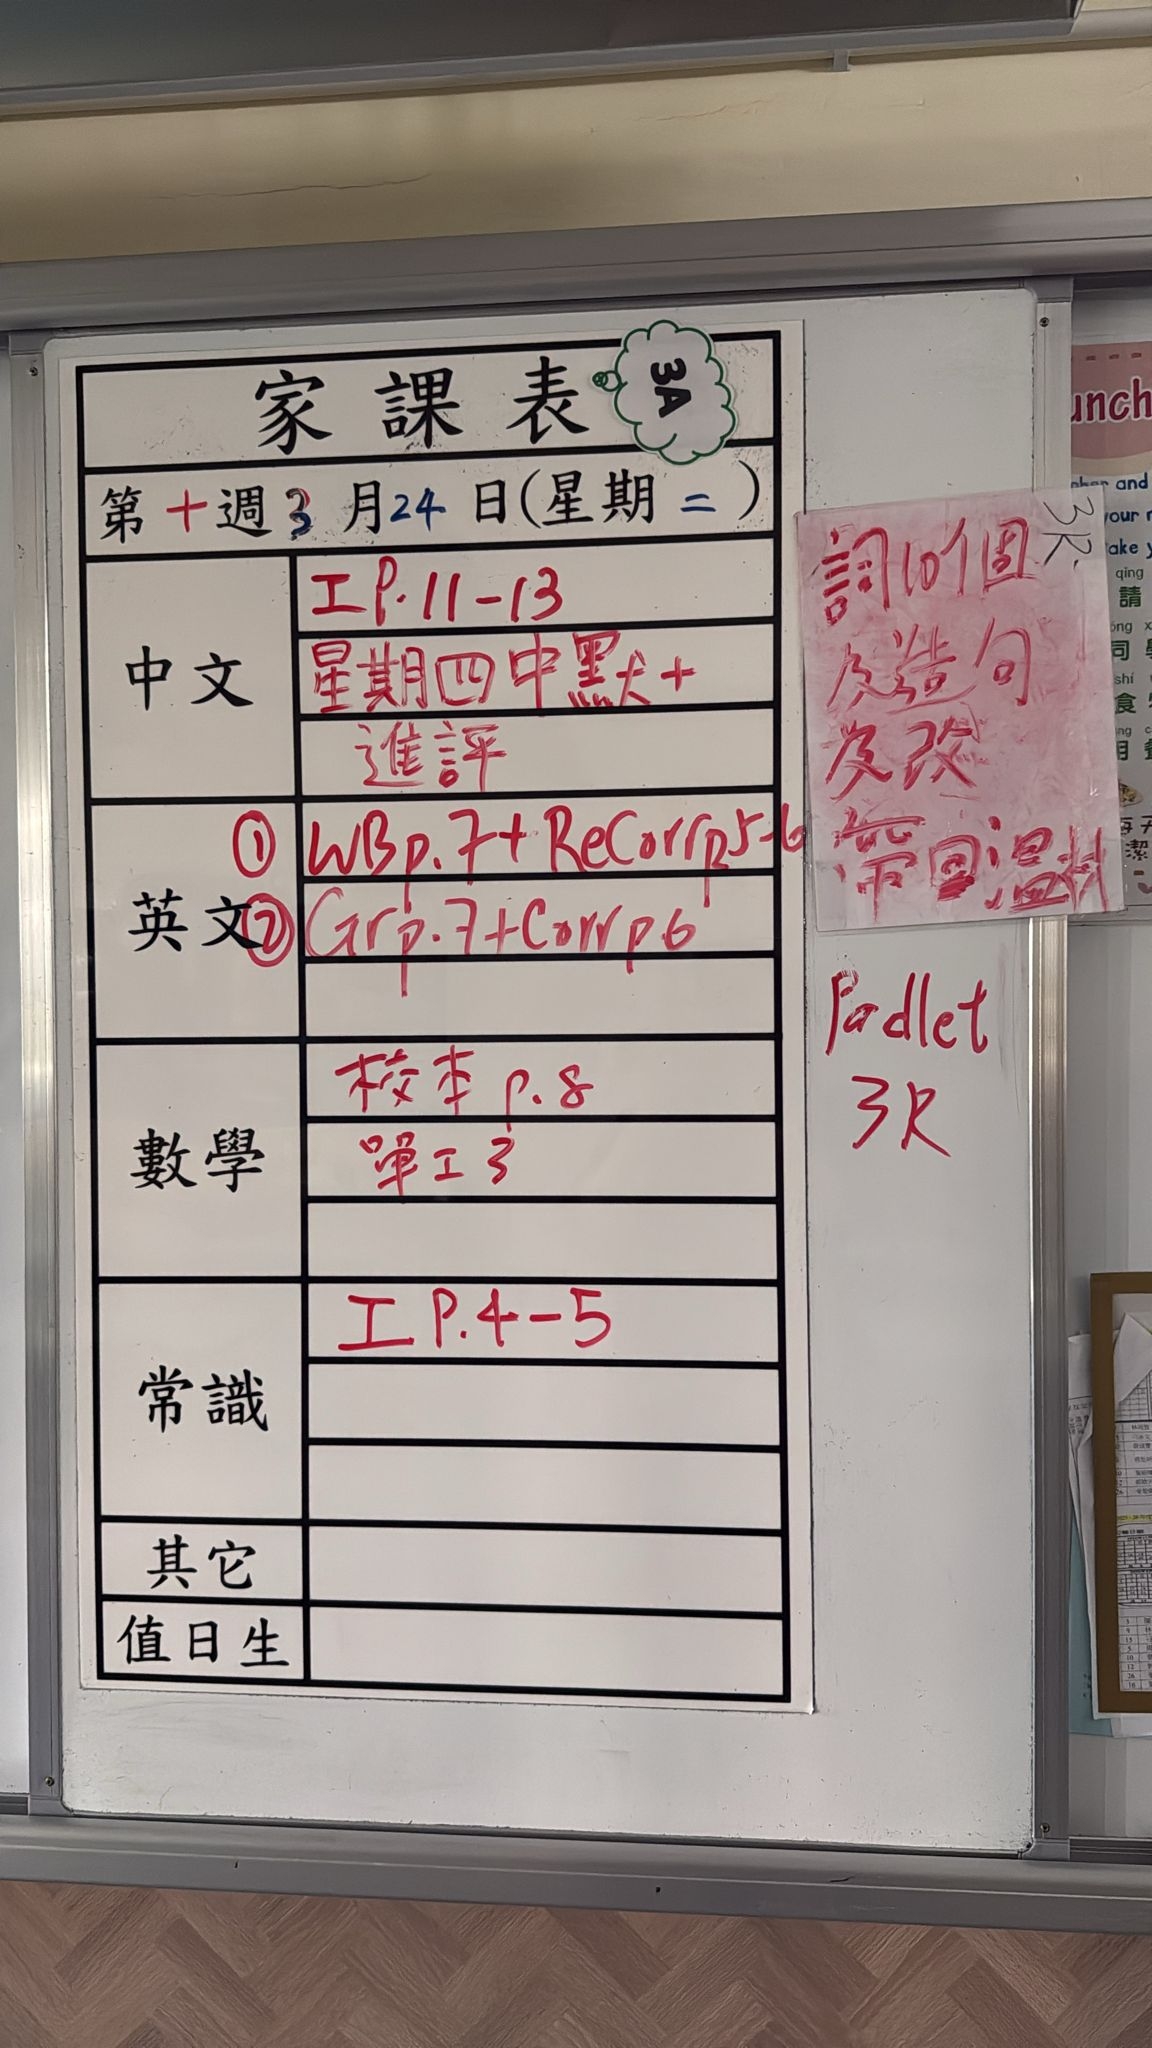 家課表
3A
第十週3月24日(星期二)
中文
工P.11-13
星期四中默+
進評
英文
① WBp.7+ReCorrp5-6
② Grp.7+Corrp6
數學
校本p.8
單工3
常識
工P.4-5
其它
值日生
3R
詞10個
及造句
及改
帶回溫
Padlet
3R
unch
and
your
qīng
請
同
食